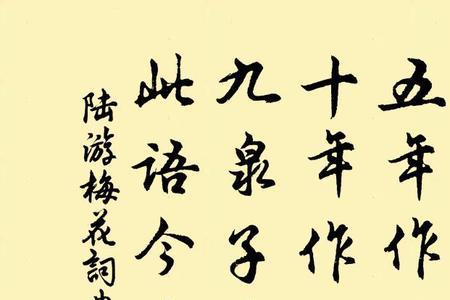 五年作
十年作
九泉子
此語今
陆游梅花詞